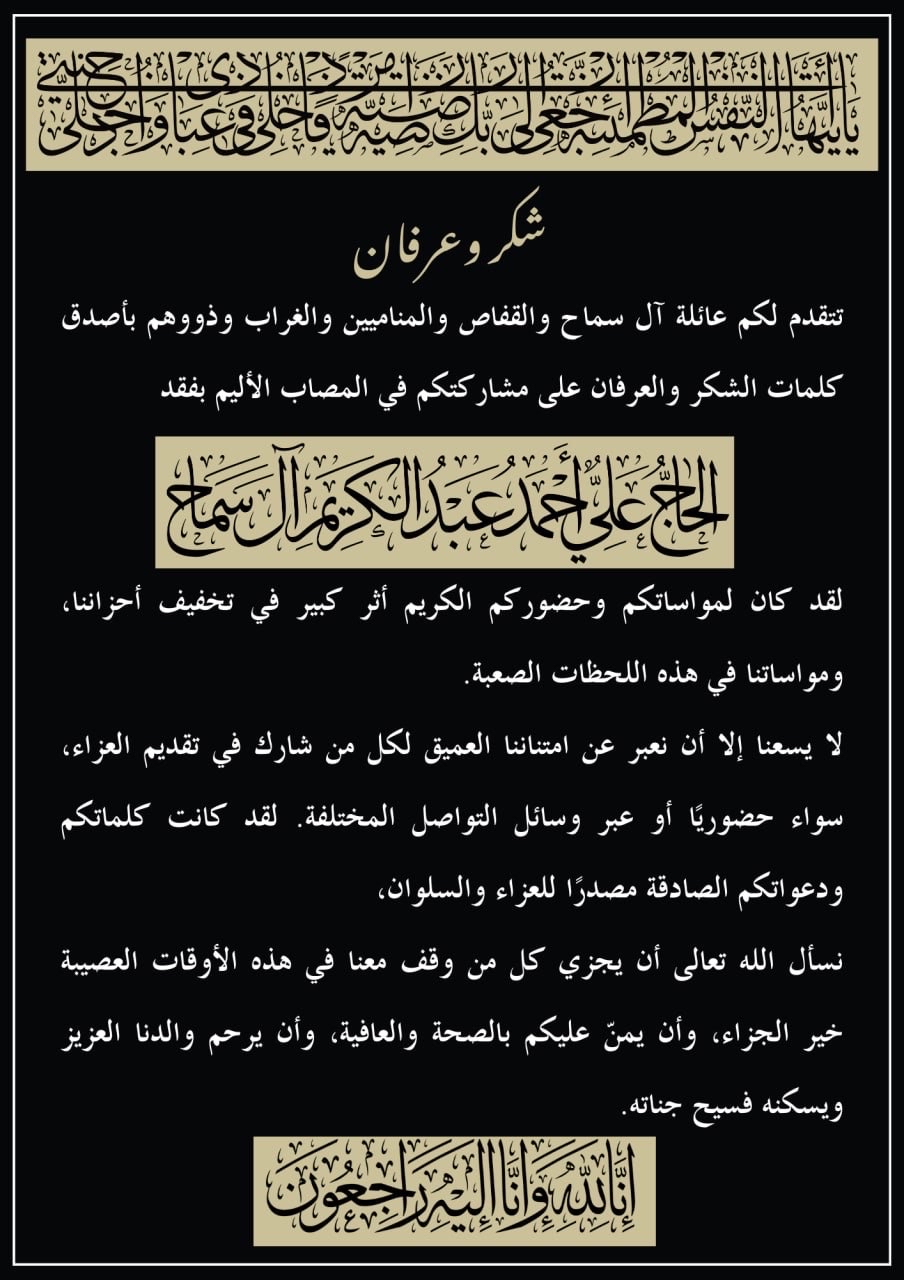 يا أيتها النفس المطمئنة ارجعي إلى ربك راضية مرضية فادخلي في عبادي وادخلي جنتي
شكر وعرفان
تتقدم لكم عائلة آل سماح والقفاص والمناميين والغراب وذووهم بأصدق
كلمات الشكر والعرفان على مشاركتكم في المصاب الأليم بفقد
الحاجُّ عَليُّ أَحمَدُ عَبدُ الكَرِيمِ آل سَمَاح
لقد كان لمواساتكم وحضوركم الكريم أثر كبير في تخفيف أحزاننا،
ومواساتنا في هذه اللحظات الصعبة.
لا يسعنا إلا أن نعبر عن امتناننا العميق لكل من شارك في تقديم العزاء،
سواء حضوريًا أو عبر وسائل التواصل المختلفة. لقد كانت كلماتكم
ودعواتكم الصادقة مصدرًا للعزاء والسلوان،
نسأل الله تعالى أن يجزي كل من وقف معنا في هذه الأوقات العصيبة
خير الجزاء، وأن يمنّ عليكم بالصحة والعافية، وأن يرحم والدنا العزيز
ويسكنه فسيح جناته.
إِنَّا لِلَّهِ وَإِنَّا إِلَيْهِ رَاجِعُونَ